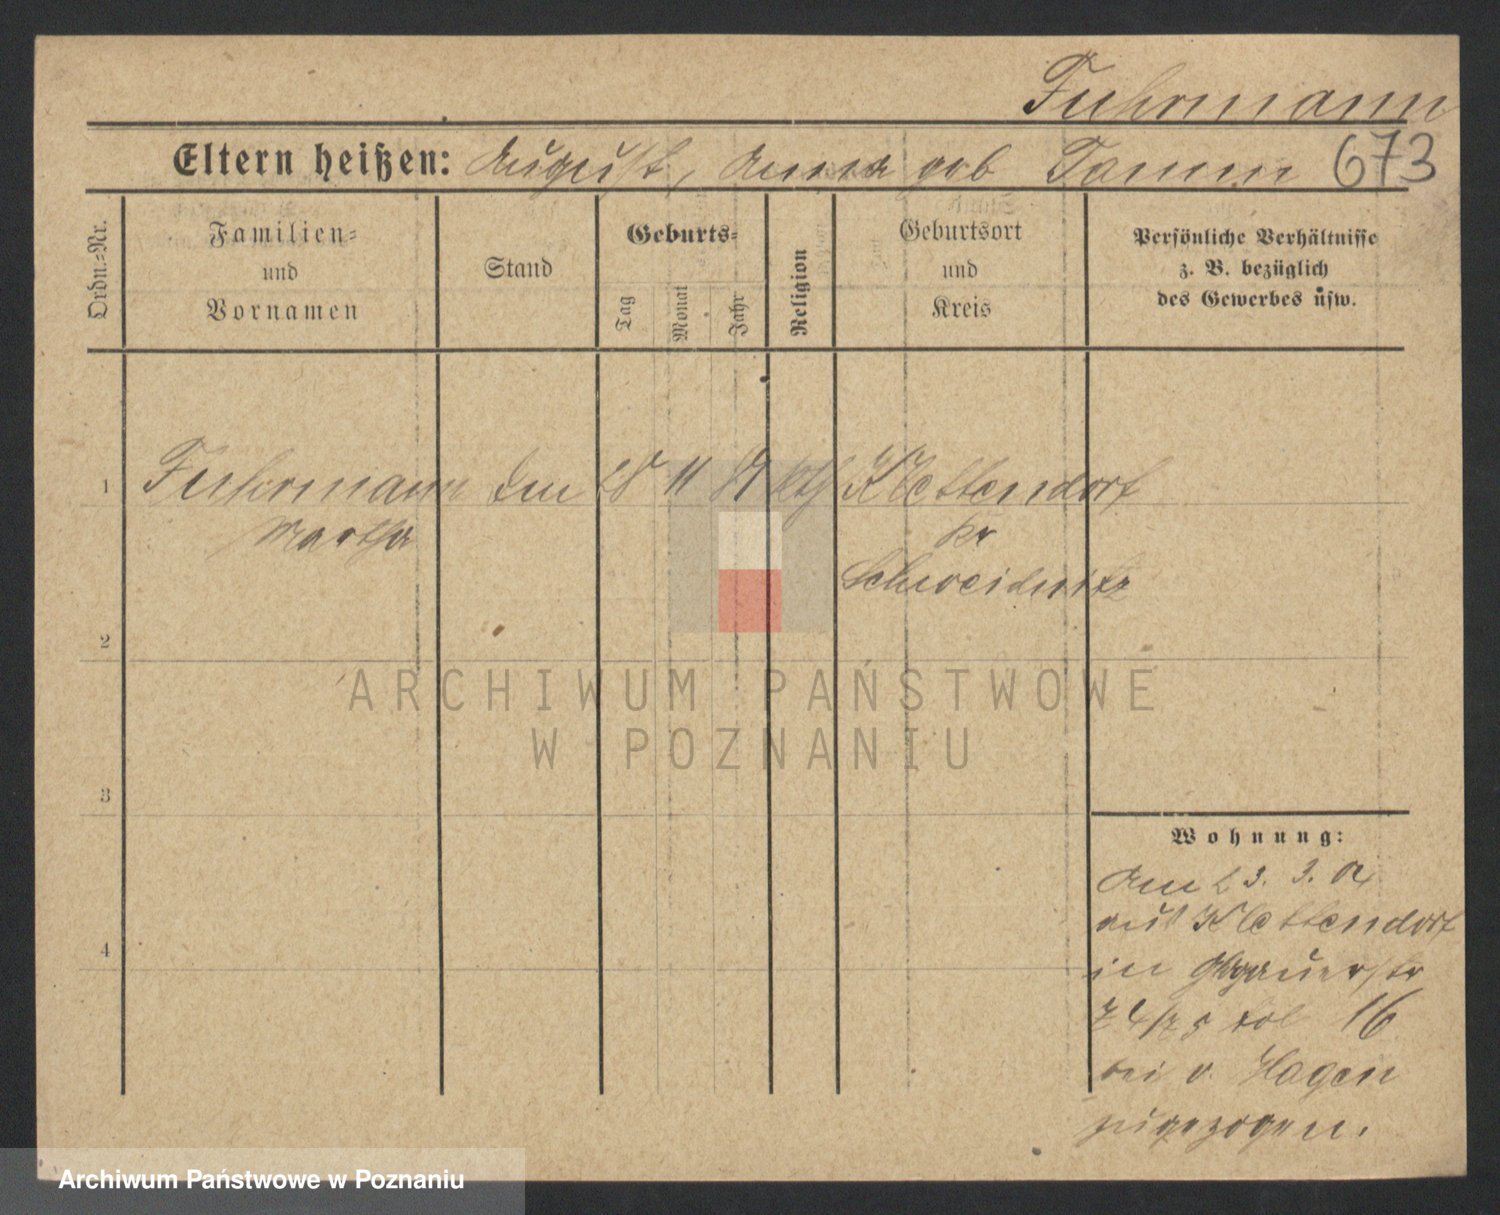 Fuhrmann
Eltern heißen: August, Anna geb Tamm 673
Ordn.=Nr.
Familien=
und
Vornamen
Stand
Geburts=
Tag
Monat
Jahr
Religion
Geburtsort
und
Kreis
Persönliche Verhältnisse
z. B. bezüglich
des Gewerbes usw.
1 Fuhrmann 11 87 kth Klettendorf
Martha Kr
Schweidnitz
2
3
4
ARCHIWUM PAŃSTWOWE
W POZNANIU
Wohnung:
Am 23. 3.
aus Klettendorf
in
74/75 16
bei v. Hagen
zugezogen.
Archiwum Państwowe w Poznaniu